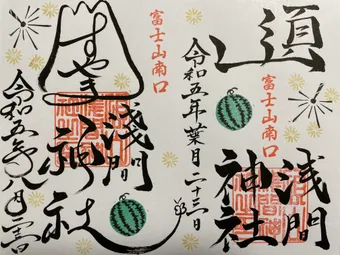 須山
富士山南口
浅間
神社
令和五年葉月二十三日
富士山南口
すやま
浅間
神社
令和五年八月